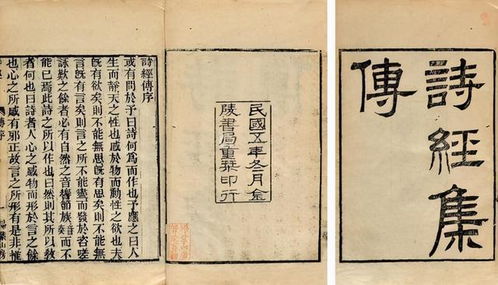 詩經集
傳
民國五年冬月金
陵書局重栞印行
詩經傳序
或有問於予曰詩何爲而作也予應之曰人
生而靜天之性也感於物而動性之欲也夫
既有欲矣則不能無思既有思矣則不能無
言既有言矣則言之所不能盡而發於咨嗟
詠歎之餘者必有自然之音響節族而不
能已焉此詩之所以作也曰然則其所以教
者何也曰詩者人心之感物而形於言之餘
也心之所感有邪正故言之所形有是非惟